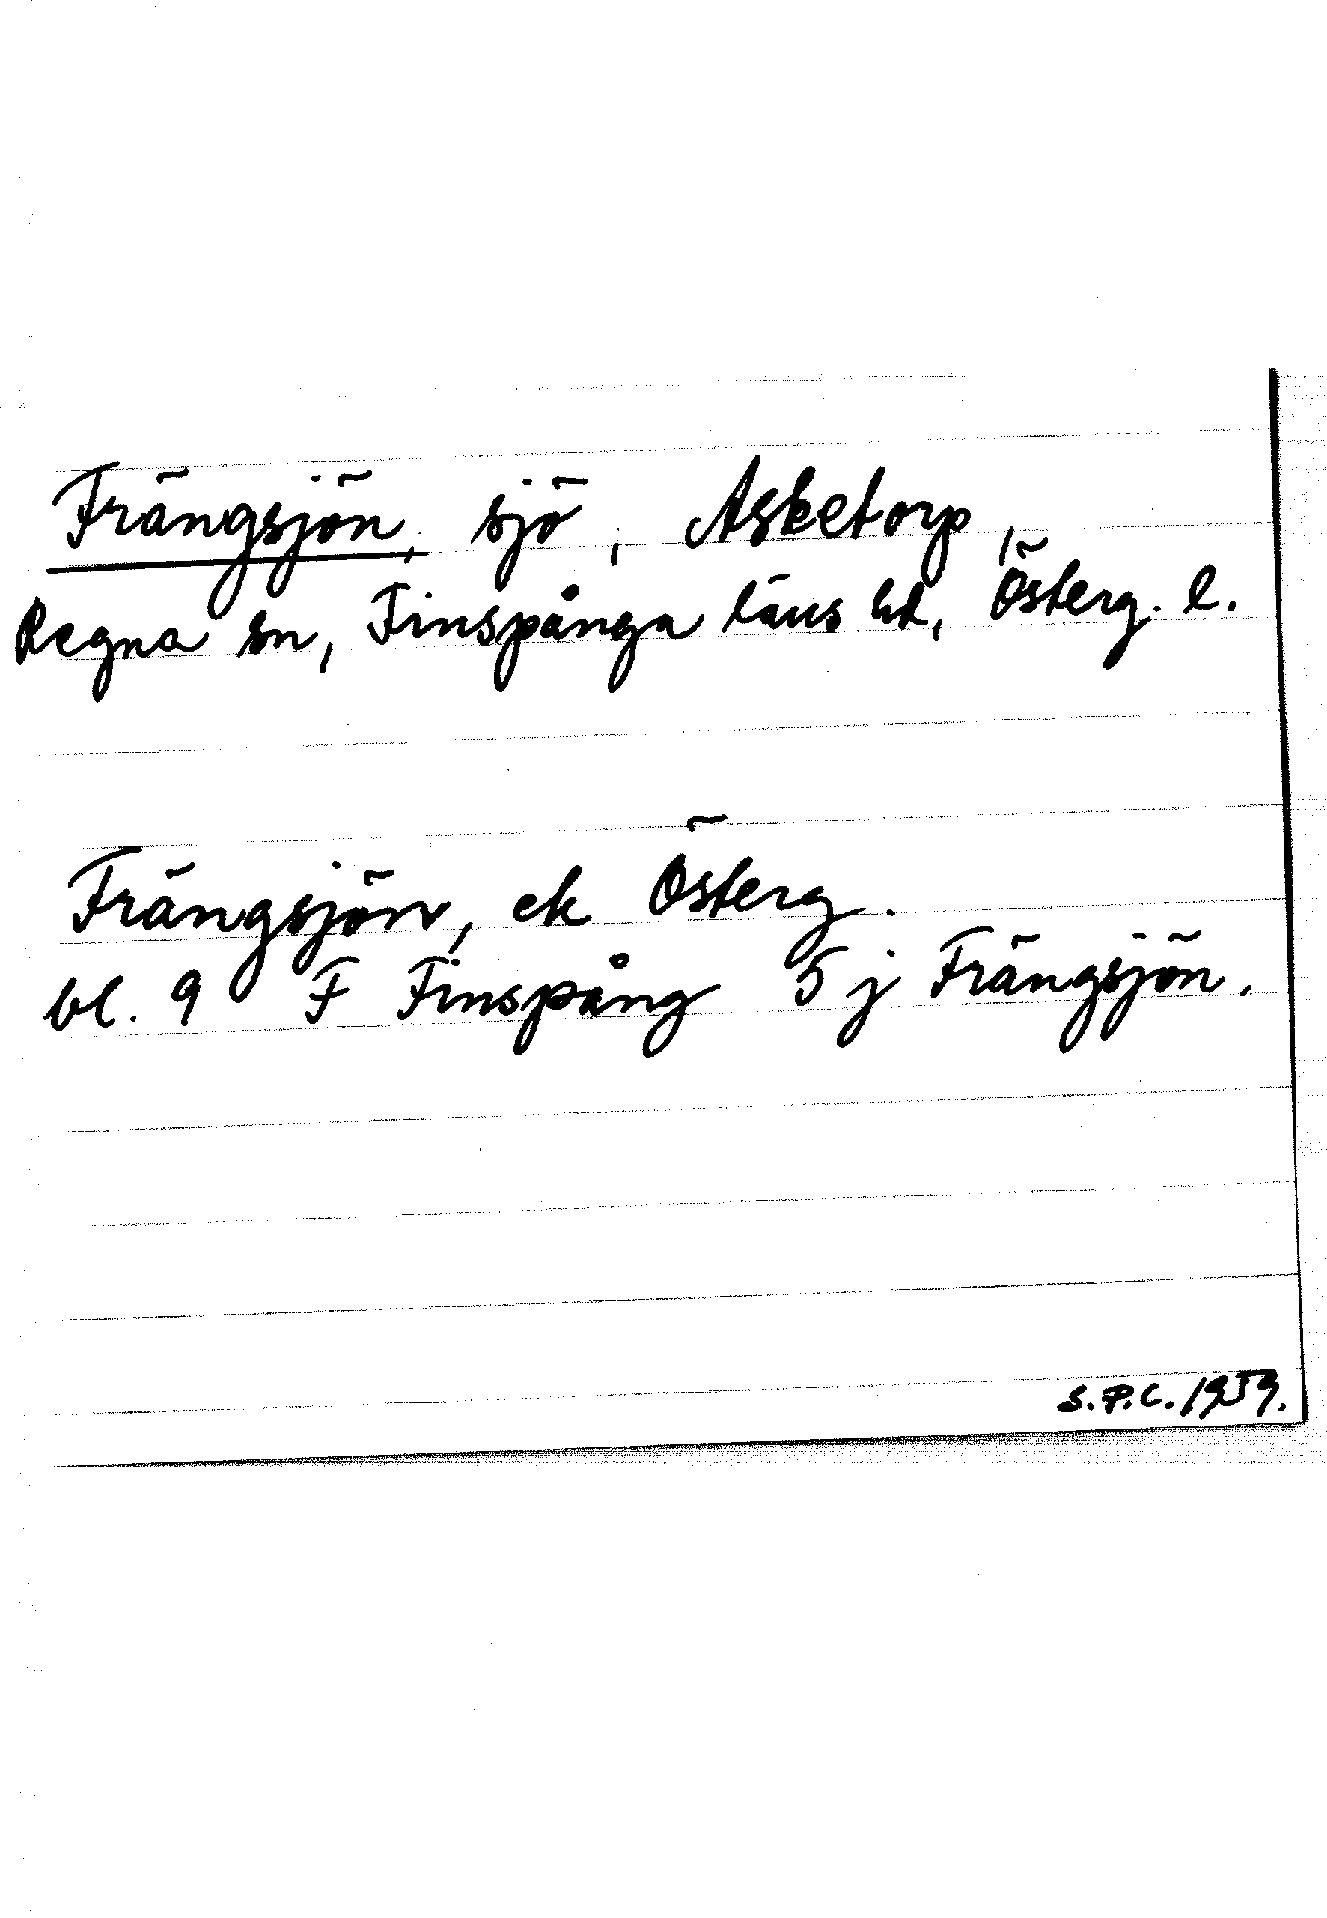 Frängsjön, sjö, Asketorp,
Regna sn, Finspånga läns hd, Österg. l.
Frängsjön, ek Österg.
bl. 9 F Finspång 5 j Frängsjön.
S.P.C. 1959.